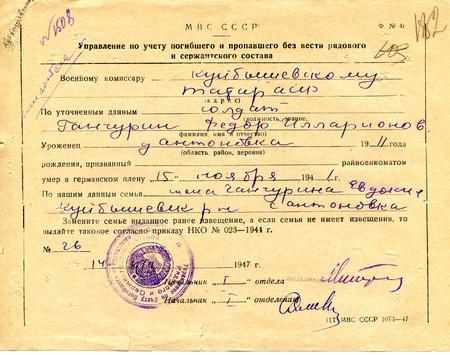 МВС СССР
Ф № 4
182
№ 1503
103
Управление по учету погибшего и пропавшего без вести рядового
и сержантского состава
Военному комиссару Куйбышевскому
Татарской
(адрес)
По уточненным данным солдат
(должность, звание,
Ганчурин Федор Илларионов
фамилия имя и отчество)
Уроженец д Антоновка 1911 года
(область, район, деревни)
рождения, призванный райвоенкоматом
умер в германском плену „15" ноября 194
По нашим данным семья: жена Ганчурина Евдокия
Куйбышевск р-н с Антоновка
Замените семье выданное ранее извещение, а если семья не имеет извещения, то
выдайте таковое согласно приказу НКО № 023—1944 г.
№ 26
14 1947 г.
Начальник „ I " отдела
Начальник „ I " отделения
МВС СССР 1073—47